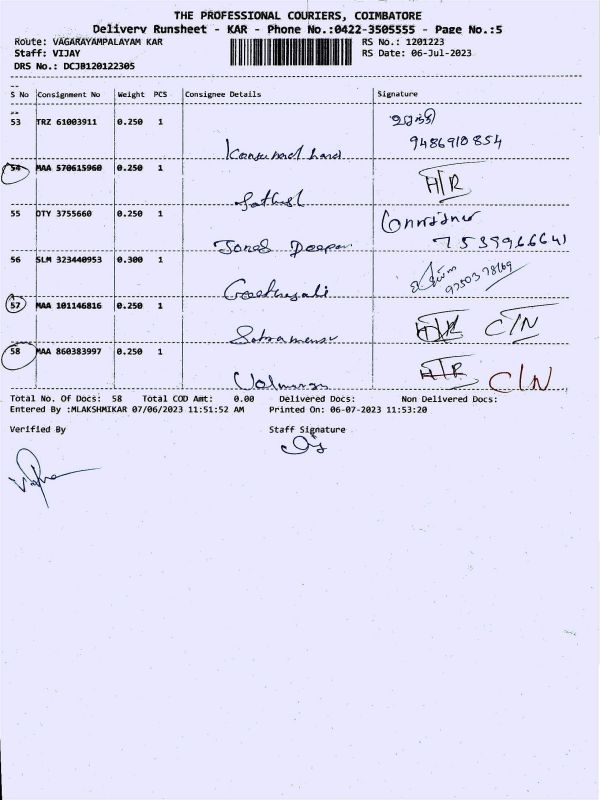 THE PROFESSIONAL COURIERS, COIMBATORE
Delivery Runsheet - KAR - Phone No.:0422-3505555 - Page No.:5
Route: VAGARAYAMPALAYAM KAR RS No.: 1201223
Staff: VIJAY RS Date: 06-Jul-2023
DRS No.: DCJB120122305
S No Consignment No Weight PCS Consignee Details Signature
53 TRZ 61003911 0.250 1
9486910854
54 MAA 570615960 0.250 1 H/R
Sathish
55 DTY 3755660 0.250 1
Jones Deepan 7539966641
56 SLM 323440953 0.300 1
9750378169
Geethanjali
57 MAA 101146816 0.250 1 C/N
58 MAA 860383997 0.250 1 H/R C/N
Total No. Of Docs: 58 Total COD Amt: 0.00 Delivered Docs: Non Delivered Docs:
Entered By :MLAKSHMIKAR 07/06/2023 11:51:52 AM Printed On: 06-07-2023 11:53:20
Verified By Staff Signature